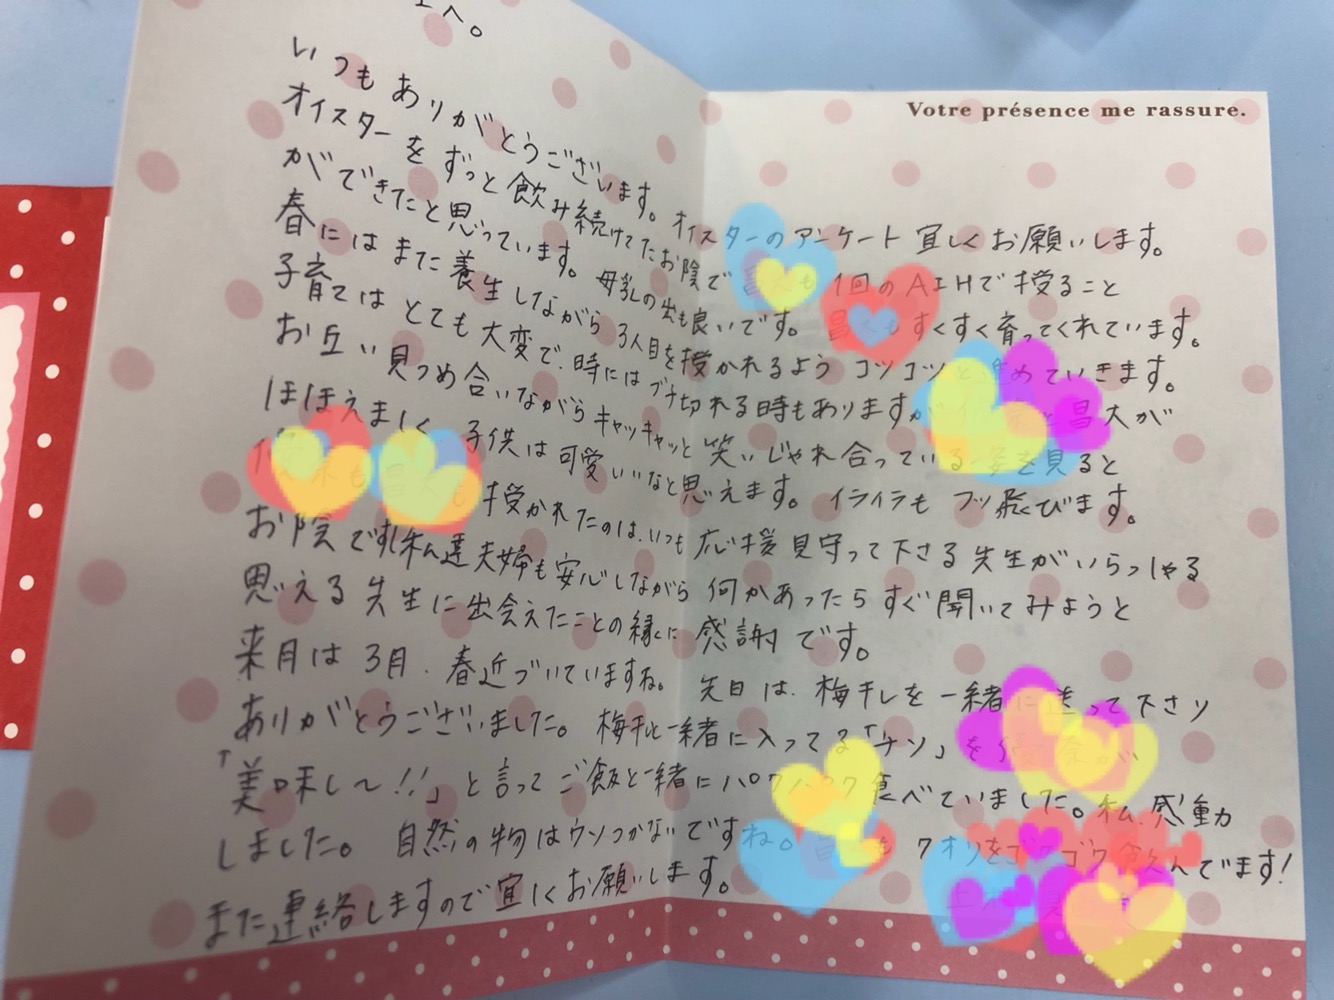 へ。
Votre présence me rassure.
いつもありがとうございます。オイスターのアンケート宜しくお願いします。
オイスターをずっと飲み続けてたお陰で も1回のAIHで授ること
ができたと思っています。母乳の出も良いです。 もすくすく育ってくれています。
春にはまた養生しながら3人目を授かれるようコツコツと進めていきます。
子育てはとても大変で、時にはブチ切れる時もありますが 昌大が
お互い見つめ合いながらキャッキャッと笑いじゃれ合っている姿を見ると
ほほえましく、子供は可愛いいなと思えます。イライラもフッ飛びます。
も も授かれたのは、いつも応援見守って下さる先生がいらっしゃる
お陰です!私達夫婦も安心しながら何かあったらすぐ聞いてみようと
思える先生に出会えたことの縁に感謝です。
来月は3月、春近づいていますね。先日は、梅干しを一緒に送って下さり
ありがとうございました。梅干と一緒に入ってる「シソ」を が
「美味し〜!!」と言ってご飯と一緒にパクパク食べていました。私、感動
しました。自然の物はウソつかないですね。 も クオリをゴクゴク飲んでます!
また連絡しますので宜しくお願いします。